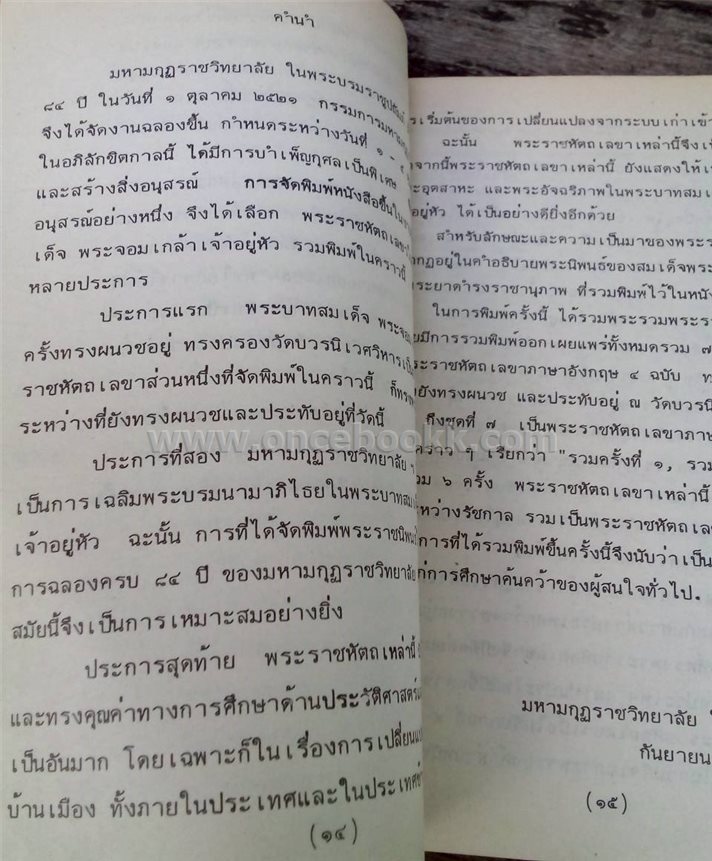 คำนำ
มหามกุฏราชวิทยาลัย ในพระบรมราชูปถัมภ์
๘๔ ปี ในวันที่ ๑ ตุลาคม ๒๕๒๑ กรรมการมหามกุ
จึงได้จัดงานฉลองขึ้น กำหนดระหว่างวันที่ ๑
ในอภิลักขิตกาลนี้ ได้มีการบำเพ็ญกุศลเป็นพิเศษ
และสร้างสิ่งอนุสรณ์ การจัดพิมพ์หนังสือขึ้นใน
อนุสรณ์อย่างหนึ่ง จึงได้เลือก พระราชหัตถเลขา
เด็จ พระจอมเกล้าเจ้าอยู่หัว รวมพิมพ์ในคราวนี้
หลายประการ
ประการแรก พระบาทสมเด็จ พระจอ
ครั้งทรงผนวชอยู่ ทรงครองวัดบวรนิเวศวิหาร
ราชหัตถเลขาส่วนหนึ่งที่จัดพิมพ์ในคราวนี้ ก็ทรง
ระหว่างที่ยังทรงผนวชและประทับอยู่ที่วัดนี้
ประการที่สอง มหามกุฏราชวิทยาลัย ฯ
เป็นการเฉลิมพระบรมนามาภิไธยในพระบาทสม
เจ้าอยู่หัว ฉะนั้น การที่ได้จัดพิมพ์พระราชนิพน
การฉลองครบ ๘๔ ปี ของมหามกุฏราชวิทยาลัย
สมัยนี้จึงเป็นการเหมาะสมอย่างยิ่ง
ประการสุดท้าย พระราชหัตถเหล่านี้
และทรงคุณค่าทางการศึกษาด้านประวัติศาสตร์
เป็นอันมาก โดยเฉพาะก็ในเรื่องการเปลี่ยนแป
บ้านเมือง ทั้งภายในประเทศและในประเทศ
(๑๔)
รเริ่มต้นของการเปลี่ยนแปลงจากระบบเก่าเข้า
ฉะนั้น พระราชหัตถเลขาเหล่านี้จึงเ
จากนี้พระราชหัตถเลขาเหล่านี้ ยังแสดงให้เ
ะอุตสาหะ และพระอัจฉริภาพในพระบาทสมเ
อยู่หัว ได้เป็นอย่างดียิ่งอีกด้วย
สำหรับลักษณะและความเป็นมาของพระร
กฏอยู่ในคำอธิบายพระนิพนธ์ของสมเด็จพระ
ระยาดำรงราชานุภาพ ที่รวมพิมพ์ไว้ในหนัง
ในการพิมพ์ครั้งนี้ ได้รวมพระรวมพระร
ยมีการรวมพิมพ์ออกเผยแพร่ทั้งหมดรวม ๗
ระราชหัตถเลขาภาษาอังกฤษ ๔ ฉบับ
ยังทรงผนวช และประทับอยู่ ณ วัดบวรนิ
ถึงชุดที่ ๗ เป็นพระราชหัตถเลขาภา
คราว ๆ เรียกว่า "รวมครั้งที่ ๑, รวม
วม ๖ ครั้ง พระราชหัตถเลขาเหล่านี้
หว่างรัชกาล รวมเป็นพระราชหัตถเล
การที่ได้รวมพิมพ์ขึ้นครั้งนี้จึงนับว่าเป็น
ก่การศึกษาค้นคว้าของผู้สนใจทั่วไป.
มหามกุฏราชวิทยาลัย
กันยายน
(๑๕)
www.oncebookk.com